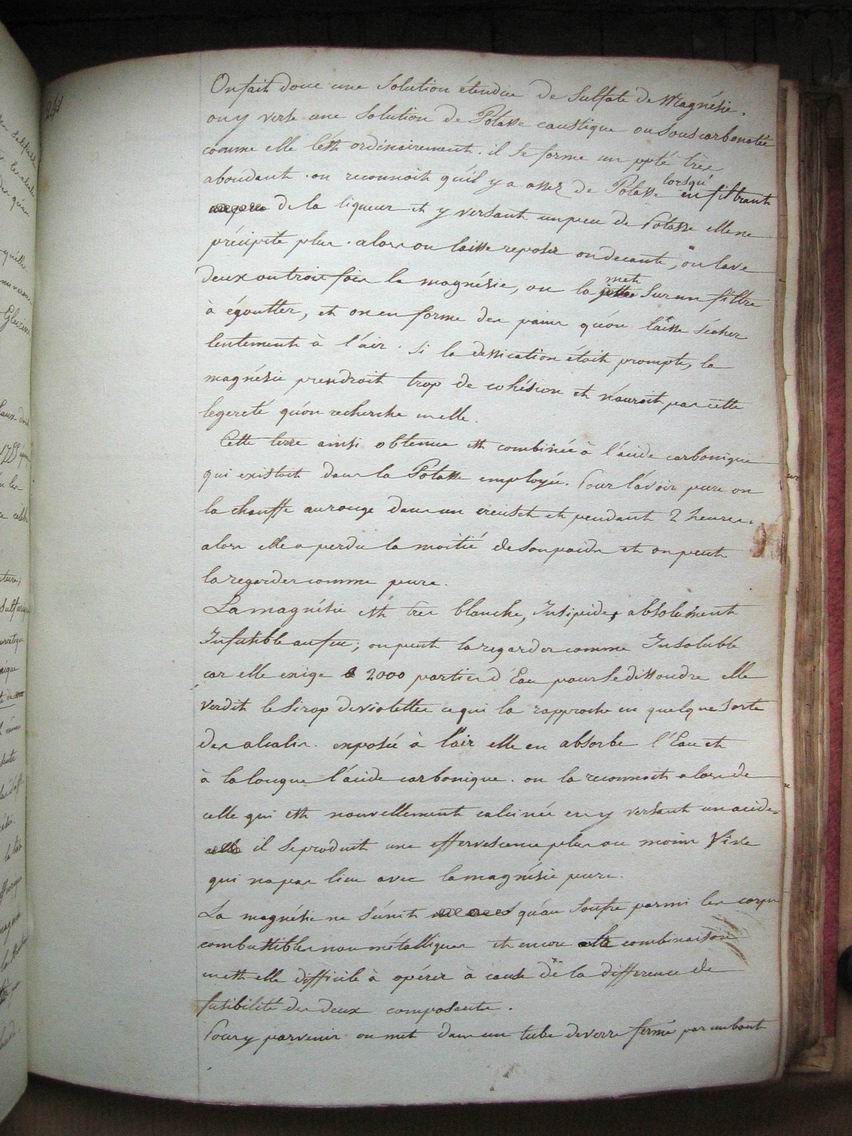 241
On fait donc une Solution étendue de Sulfate de Magnésie.
on y verse une Solution de Potasse caustique ou souscarbonatée
comme elle l'est ordinairement. il se forme un ppté très
abondant. on reconnoit qu'il y a assez de Potasse lorsqu' en filtrant
de la liqueur et y versant un peu de Potasse elle ne
précipite plus. alors on laisse reposer on decante, on lave
deux ou trois fois la magnésie, on la met sur un filtre
à égoutter, et on en forme des pains qu'on laisse sécher
lentement à l'air. Si la dessication étoit prompte, la
magnésie prendroit trop de cohésion et n'auroit pas cette
legereté qu'on recherche en elle.
Cette terre ainsi obtenue est combinée à l'acide carbonique
qui existoit dans la Potasse employée. Pour l'avoir pure on
la chauffe au rouge dans un creuset et pendant 2 heures.
alors elle a perdu la moitié de son poids et on peut
la regarder comme pure.
La magnésie est très blanche, Insipide, absolument
Infusible au feu, on peut la regarder comme Insoluble
car elle exige 2000 parties d'Eau pour se dissoudre elle
verdit le Sirop de violettes ce qui la rapproche en quelque sorte
des alcalis. exposée à l'air elle en absorbe l'Eau et
à la longue l'acide carbonique. on la reconnoit alors de
celle qui est nouvellement calcinée en y versant un acide
il se produit une effervescence plus ou moins Vive
qui n'a pas lieu avec la magnésie pure.
La magnésie ne s'unit qu'au Soufre parmi les corps
combustibles non métalliques et encore combinaison
est elle difficile à opérer à cause de la différence de
fusibilité des deux composants.
Pour y parvenir on met dans un tube de verre fermé par un bout